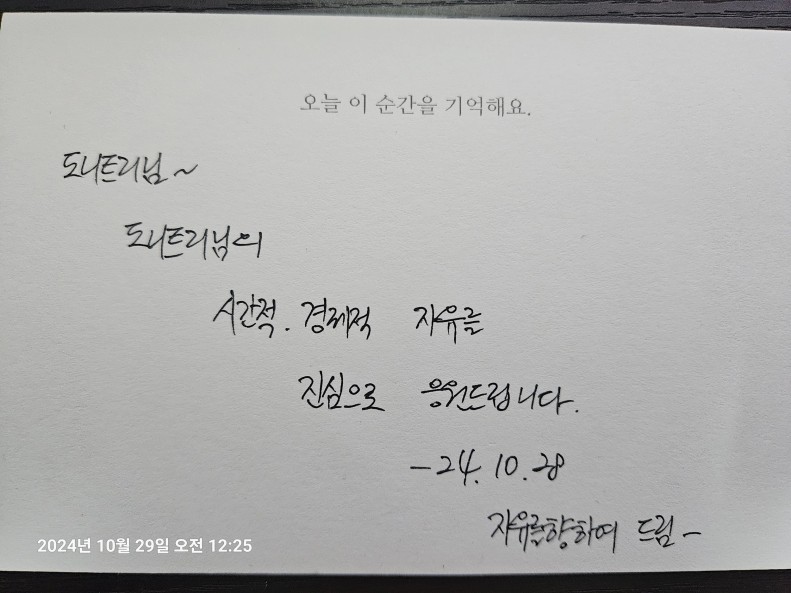 오늘 이 순간을 기억해요.
도니트리님~
도니트리님의
시간적. 경제적 자유를
진심으로 응원드립니다.
-24.10.28
자유를향하여 드림-
2024년 10월 29일 오전 12:25